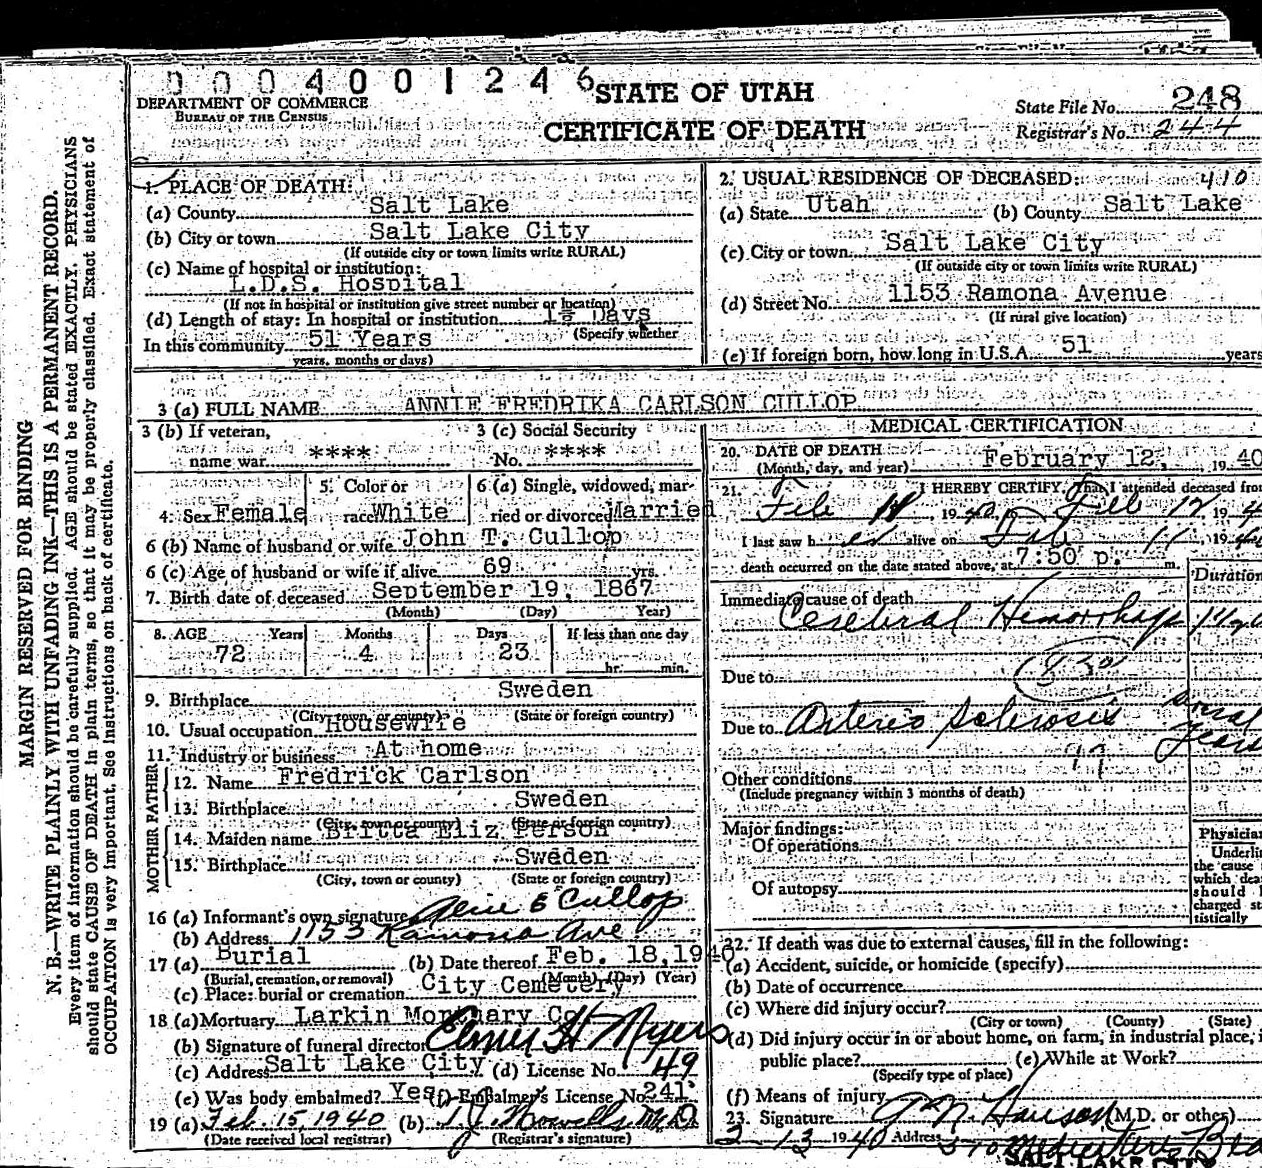 0004001246
DEPARTMENT OF COMMERCE
BUREAU OF THE CENSUS
STATE OF UTAH
CERTIFICATE OF DEATH
State File No. 248
Registrar's No. 244
MARGIN RESERVED FOR BINDING
N. B.—WRITE PLAINLY WITH UNFADING INK—THIS IS A PERMANENT RECORD.
Every item of information should be carefully supplied. AGE should be stated EXACTLY. PHYSICIANS
should state CAUSE OF DEATH in plain terms, so that it may be properly classified. Exact statement of
OCCUPATION is very important. See instructions on back of certificate.
1. PLACE OF DEATH:
(a) County Salt Lake
(b) City or town Salt Lake City
(If outside city or town limits write RURAL)
(c) Name of hospital or institution:
L.D.S. Hospital
(If not in hospital or institution give street number or location)
(d) Length of stay: In hospital or institution 1½ Days
(Specify whether
In this community 51 Years
years, months or days)
2. USUAL RESIDENCE OF DECEASED: 410
(a) State Utah (b) County Salt Lake
(c) City or town Salt Lake City
(If outside city or town limits write RURAL)
(d) Street No. 1153 Ramona Avenue
(If rural give location)
(e) If foreign born, how long in U.S.A. 51 years
3 (a) FULL NAME ANNIE FREDRIKA CARLSON CULLOP
3 (b) If veteran,
name war ****
3 (c) Social Security
No. ****
4. Sex Female
5. Color or
race White
6 (a) Single, widowed, mar-
ried or divorced Married
6 (b) Name of husband or wife John T. Cullop
6 (c) Age of husband or wife if alive 69 yrs.
7. Birth date of deceased September 19, 1867
(Month) (Day) Year)
8. AGE Years Months Days If less than one day
72 4 23 hr. min.
9. Birthplace Sweden
(City, town or county) (State or foreign country)
10. Usual occupation Housewife
11. Industry or business At home
FATHER
12. Name Fredrick Carlson
13. Birthplace Sweden
(City, town or county) (State or foreign country)
MOTHER
14. Maiden name Britta Eliz Person
15. Birthplace Sweden
(City, town or county) (State or foreign country)
16 (a) Informant's own signature E Cullop
(b) Address 1153 Ramona Ave
17 (a) Burial (b) Date thereof Feb. 18, 1940
(Burial, cremation, or removal) (Month) (Day) (Year)
(c) Place: burial or cremation City Cemetery
18 (a) Mortuary Larkin Mortuary Co
(b) Signature of funeral director Elmer H Myers
(c) Address Salt Lake City (d) License No. 49
(e) Was body embalmed? Yes (f) Embalmer's License No. 241
19 (a) Feb. 15, 1940 (b) T.J. Howells M.D.
(Date received local registrar) (Registrar's signature)
MEDICAL CERTIFICATION
20. DATE OF DEATH February 12, 1940
(Month, day, and year)
21. I HEREBY CERTIFY, That I attended deceased from
Feb 11, 1940, Feb 12 194
I last saw her alive on Feb 11, 1940
death occurred on the date stated above, at 7:50 p. m.
Duration
Immediate cause of death
Cerebral Hemorrhage
Due to 83a
Due to Arterio Sclerosis several years
97
Other conditions
(Include pregnancy within 3 months of death)
Major findings:
Of operations
Of autopsy
Physician
Underline
the cause
which death
should
charged sta-
tistically
22. If death was due to external causes, fill in the following:
(a) Accident, suicide, or homicide (specify)
(b) Date of occurrence
(c) Where did injury occur?
(City or town) (County) (State)
(d) Did injury occur in or about home, on farm, in industrial place, i
public place? (e) While at Work?
(Specify type of place)
(f) Means of injury
23. Signature (M.D. or other)
2-13 1940 Address
SALT LAKE CITY